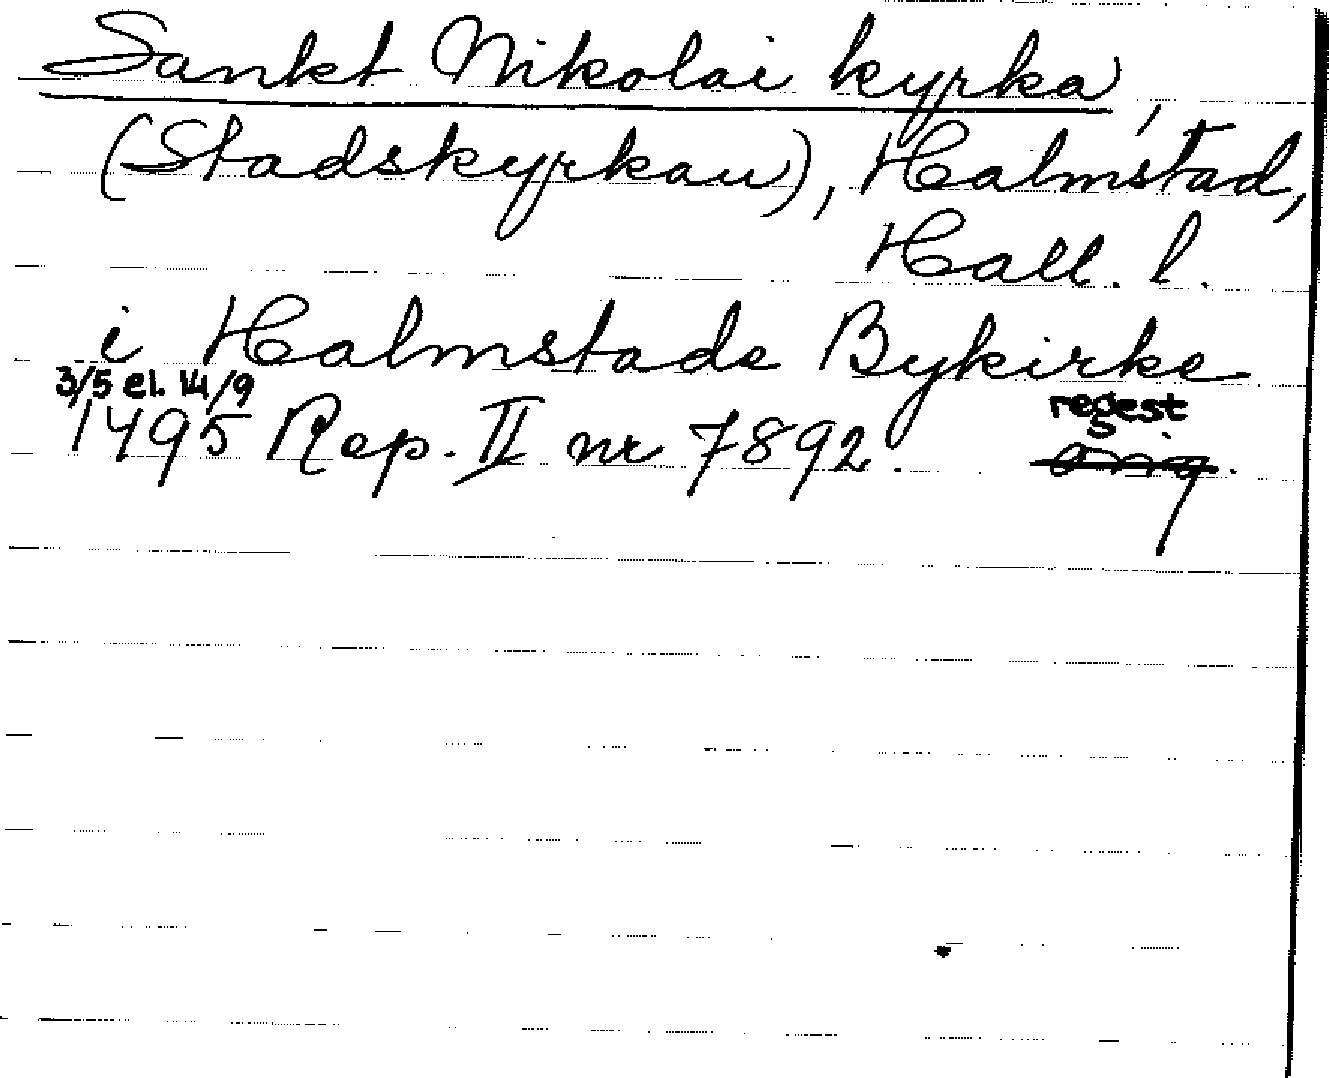 Sankt Nikolai kyrka,
(Stadskyrkan), Halmstad,
Hall. l.
i Halmstads Bykirke
3/5 el. 14/9 regest
1495 Rep. II nr 7892.